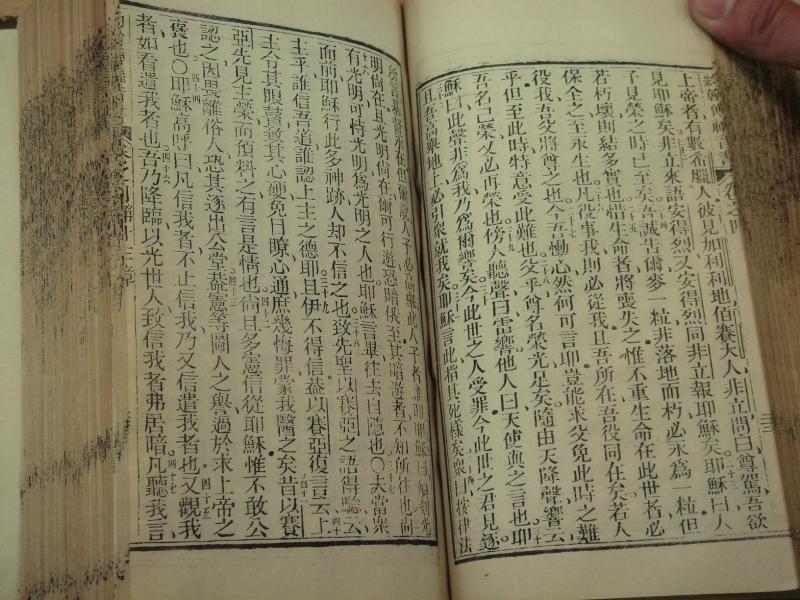 約翰傳福音書 卷之四
上帝者有數希臘人彼見加利利地伯賽大人非立問曰尊駕吾欲
見耶穌矣非立來語安得烈又安得烈同非立報耶穌矣耶穌曰人
子見榮之時已至矣吾誠告爾麥一粒非落地而朽必永為一粒但
若朽壞則結多實也惜生命者將喪失之惟不重生命在此世者必
保全之至永生也凡役事我則必從我且吾所在吾役同住矣若人
役我吾父將尊之也今吾慟心然何可言耶豈能求父免此時之難
乎但至此時特意受此難也父乎尊名榮光足矣隨由天降聲響云
吾名已榮又必再榮也傍人聽聲曰雷響他人曰天使與之言也耶
穌曰此聲非為我乃為爾響矣今此世之人受罪今此世之君見逐
且吾高舉地上必引眾就我矣耶穌言此指其死樣矣眾曰按律法
永在但爾說人子必高舉此人子者誰耶耶穌曰頃刻光
明尚在且光明尚在爾可行遊恐暗俄至其暗遊者不知所往也尚
有光明可恃光明為光明之人也耶穌言畢往去自隱也○夫當眾
而前耶穌行此多神跡人却不信之也致先聖以賽亞之語得驗云
主乎誰信吾道誰認上主之德耶且伊不得信葢以賽亞復言云上
主令其眼瞽致其心硬免目瞭心通庶幾悔罪蒙我醫之矣昔以賽
亞先見主榮而預料之有言是情也尚且多憲信從耶穌惟不敢公
認之因畏離俗人恐其逐出公堂葢憲等圖人之譽過於求上帝之
褒也○耶穌高呼曰凡信我者不止信我乃又信遣我者也又觀我
者如看遣我者也吾乃降臨以光世人致信我者弗居暗凡聽我言